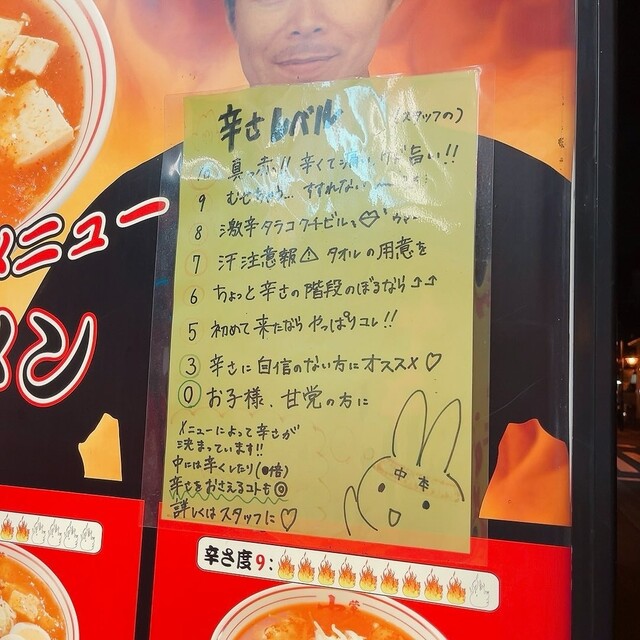 辛さレベル
(スタッフの)
10 真っ赤!! 辛くて痛いけど旨い!!
9 むせちゃう… すすれない〜
8 激辛タラコクチビル
7 汗注意報⚠ タオルの用意を
6 ちょっと辛さの階段のぼるなら↗↗
5 初めて来たならやっぱりコレ!!
3 辛さに自信のない方にオススメ♡
0 お子様、甘党の方に
メニューによって辛さが
決まっています!!
中には辛くしたり(●倍)
辛さをおさえるコトも◎
詳しくはスタッフに♡
中本
メニュー
メン
辛さ度9: